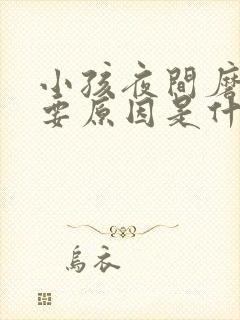 小孩夜間磨
要原因是什
烏衣